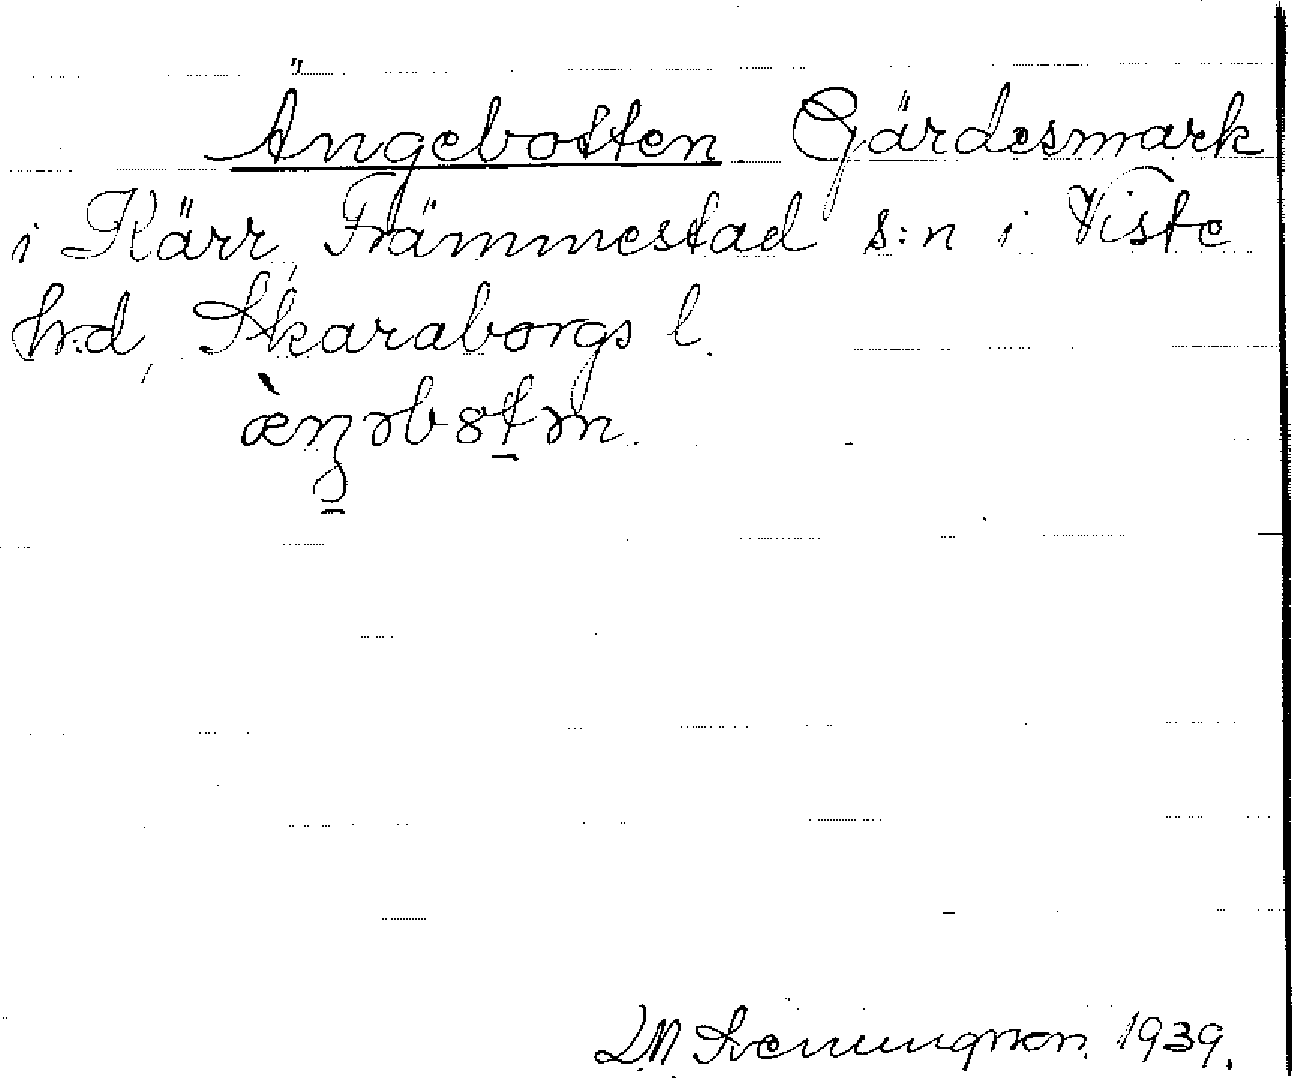 Ängebotten Gärdesmark
i Kärr, Främmestad s:n i Viste
hr.d, Skaraborgs l.
L.M. Svenungsson. 1939.